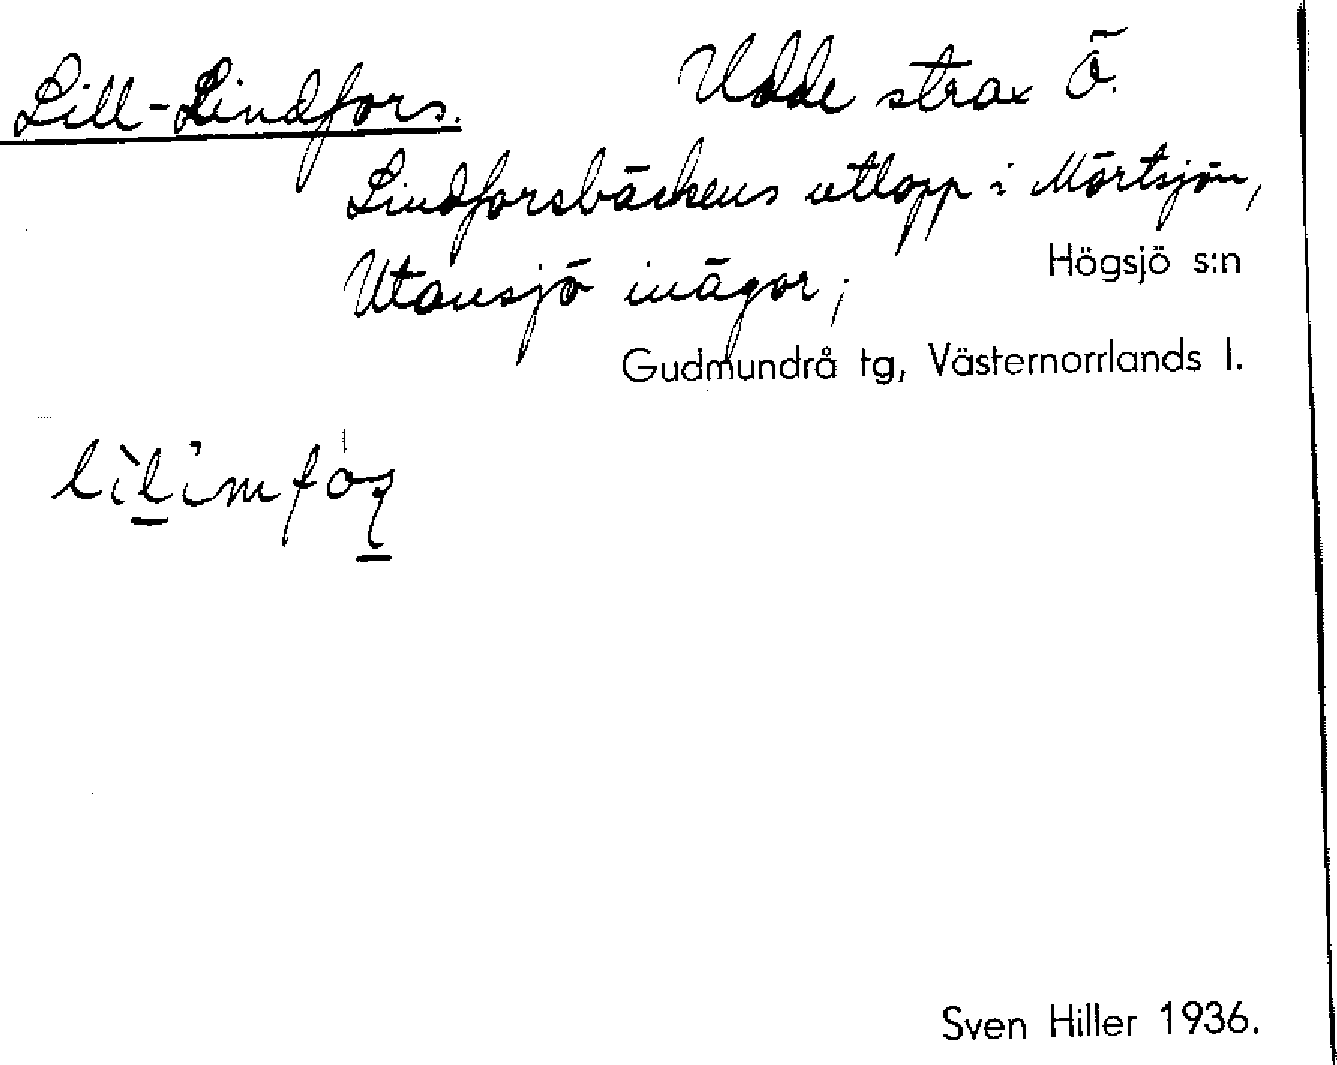 Lill-Lindfors. Udde strax Ö.
Lindforsbäckens utlopp i Mörtsjön,
Utansjö inägor; Högsjö s:n
Gudmundrå tg, Västernorrlands l.
Sven Hiller 1936.